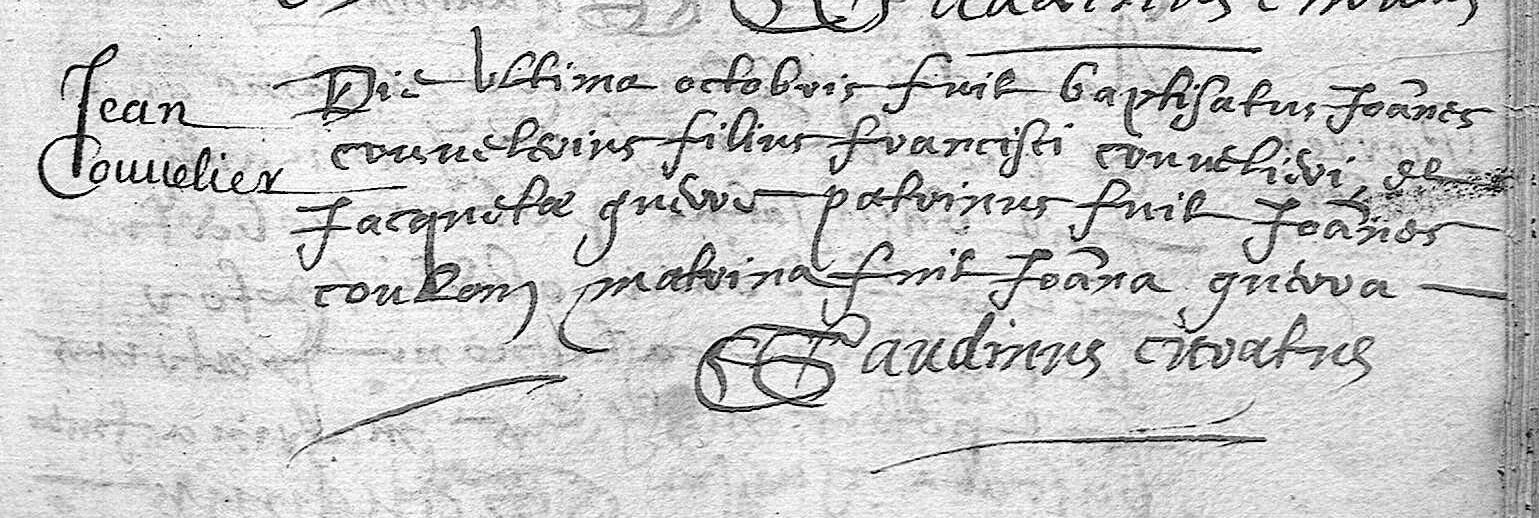 Jean
Couvelier
Die Ultima octobris fuit baptisatus Joānes
couvelerius filius francisci couvelieri, et
Jacquetæ guerre patrinus fuit Joānes
coulom matrina fuit Joāna guerra
Gaudinus curatus